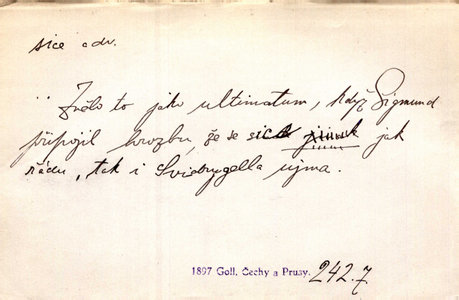 sice adv.
Znělo to jako ultimatum, když Sigmund
připojil hrozbu, že se sice jinak jak
řádu, tak i Svidrygella ujma.
1897 Goll, Čechy a Prusy. 242.7